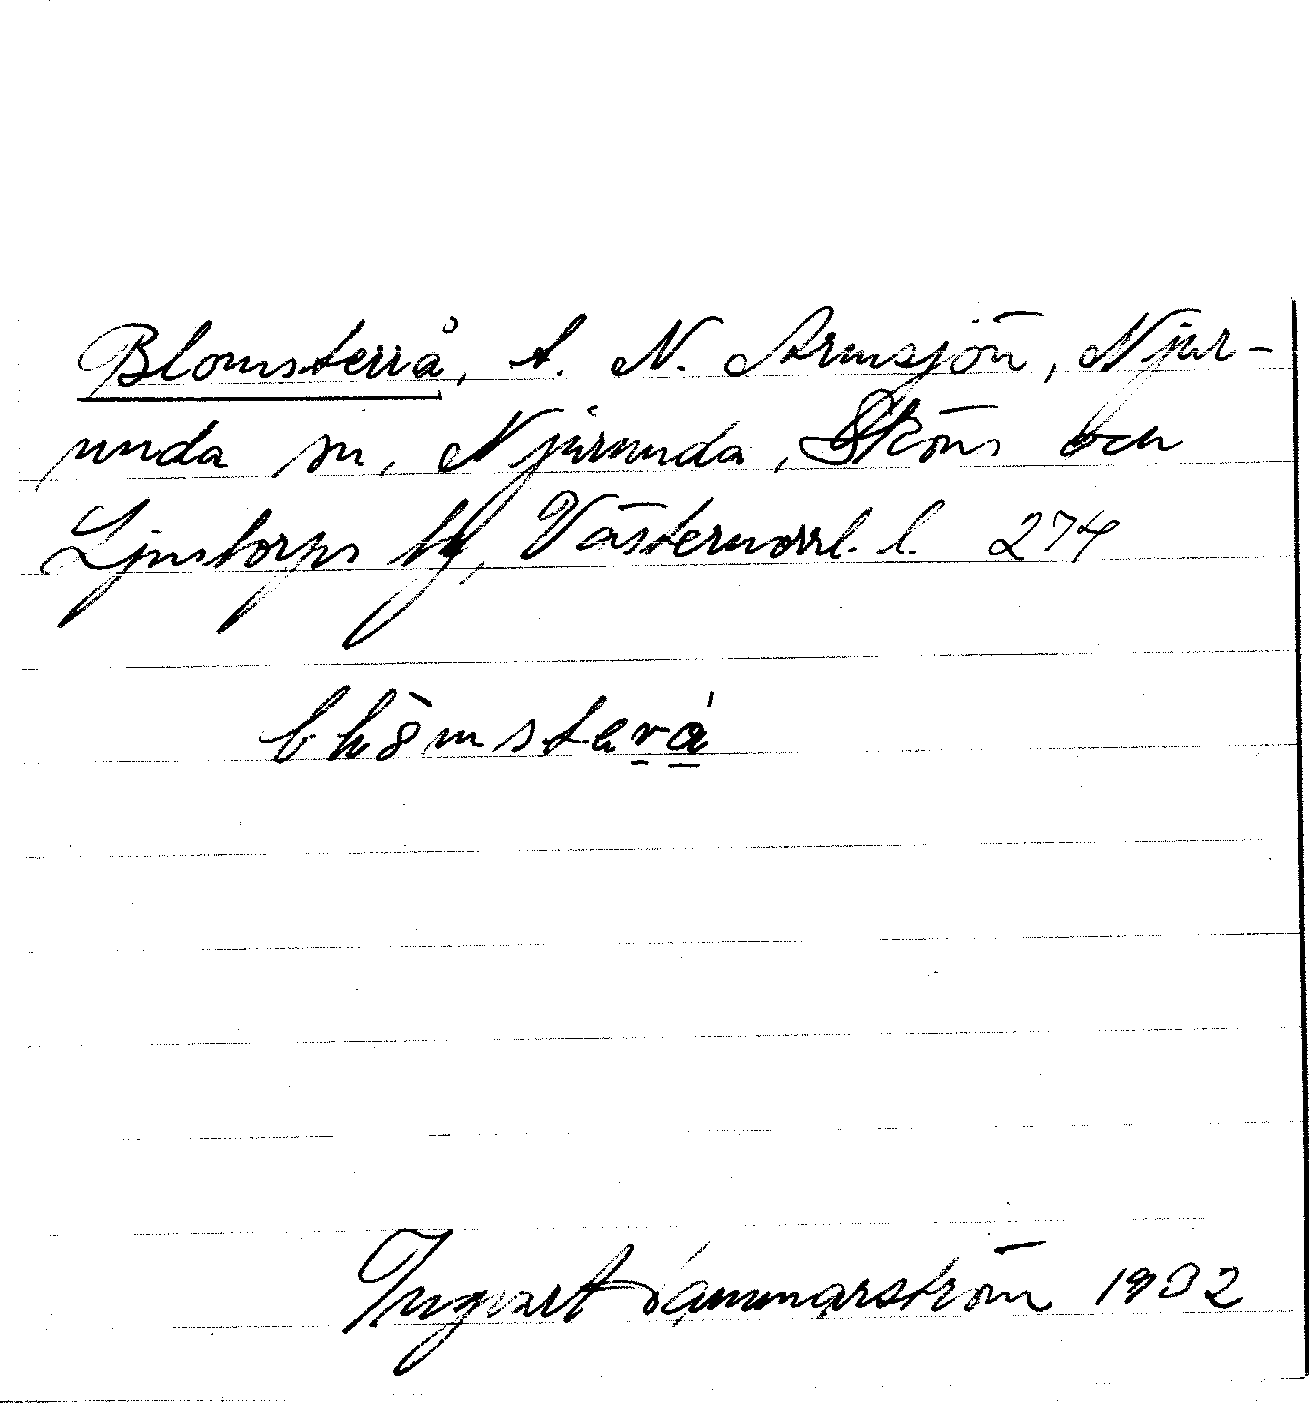 Blomsterrå, t. N. Armsjön, Njur-
unda sn, Njurunda, Sköns och
Ljustorps tg, Västernorrl. l. 274
Ingvart Hammarström 1932